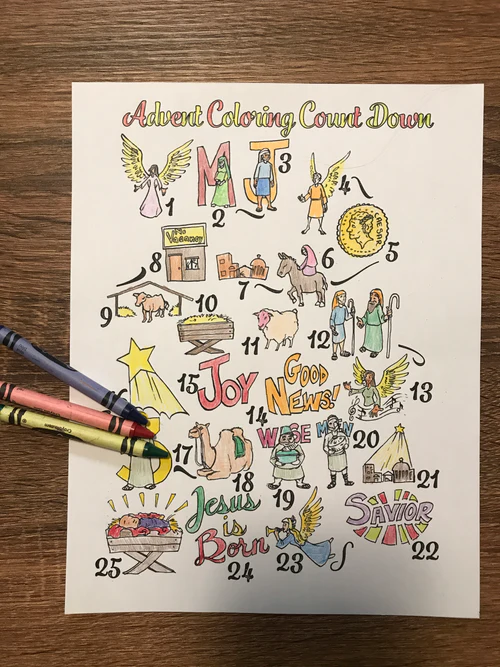 Advent Coloring Count Down
M J 3
1 2 4
CAESAR
No Vacancy
5
8 6
7
9 10
11 12
15 JOY GOOD NEWS! 13
14
S 17 WISE MEN 20
18 19 21
Jesus is Born
SAVIOR
25 24 23 22